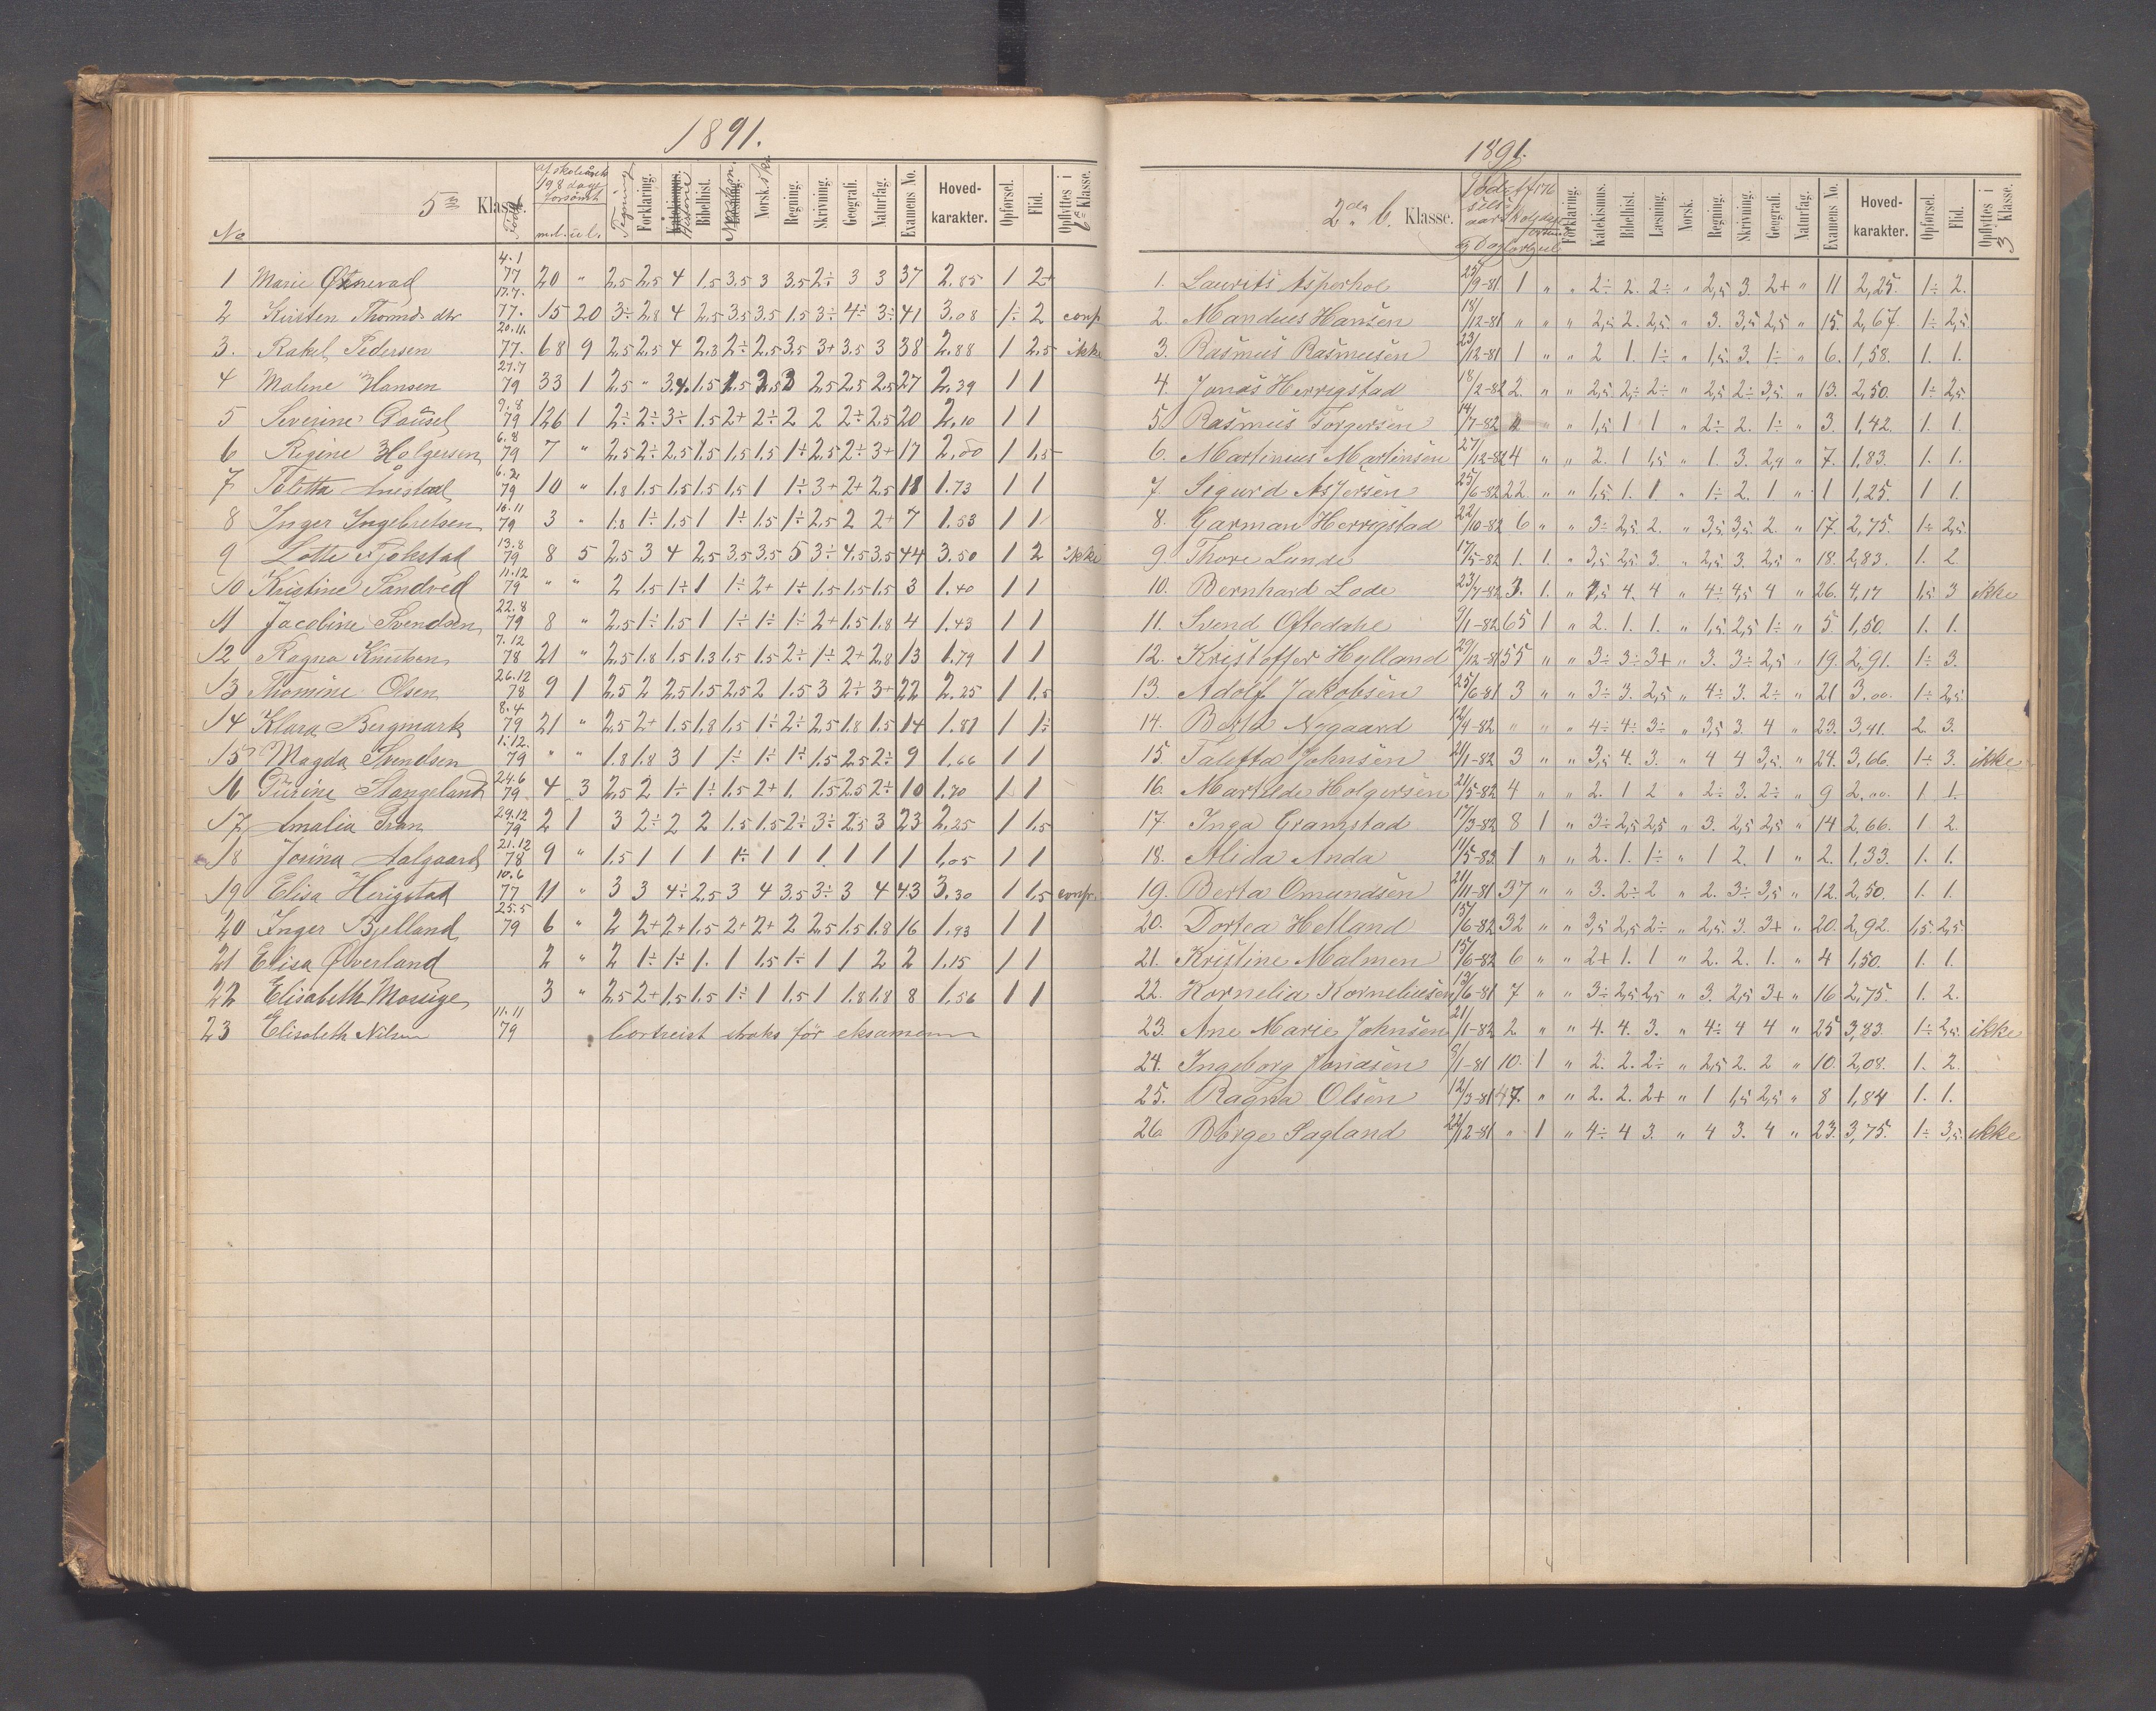 1891.
No 5te Klasse. Född af skoleårets 198 dage forsömt m.l. u.l. Tegning Forklaring. Historie Bibelhist. Norsk Norsk skr. Regning. Skrivning. Geografi. Naturfag. Examens No. Hoved-karakter. Opførsel. Flid. Opflyttes i 6te Klasse.
1 Marie Østnevad 4.1 77 20 " 2,5 2,5 4 1.5 3.5 3 3.5 2÷ 3 3 37 2.85 1 2+
2 Kirsten Thomds dtr 17.7. 77. 15 20 3÷ 2,8 4 2,5 3,5 3,5 1.5 3÷ 4÷ 3÷ 41 3.08 1÷ 2 conf
3. Rakel Pedersen 20.11. 77. 68 9 2,5 2,5 4 2.3 2÷ 2.5 3.5 3+ 3.5 3 38 2.88 1 2.5 ikke
4 Maline Hansen 27.7 79 33 1 2,5 " 3.4 1.5 1.5 2.5 3 2,5 2,5 2,5 27 2,39 1 1
5 Severine Gausel 9.8 79 126 1 2÷ 2÷ 3÷ 1.5 2+ 2÷ 2 2 2÷ 2.5 20 2,10 1 1
6 Regine Holgersen 6.8 79 7 " 2,5 2÷ 2,5 1,5 1,5 1,5 1÷ 2,5 2÷ 3+ 17 2,00 1 1,5
7 Toletta Auestad 79 10 " 1.8 1.5 1.5 1.5 1,5 1 1÷ 3+ 2+ 2.5 11 1.73 1 1
8 Inger Ingebretsen 10.11 79 3 " 1.8 1÷ 1.5 1 1÷ 1.5 1÷ 2,5 2 2+ 7 1.53 1 1
9 Lotte Tjokstad 13.8 79 8 5 2,5 3 4 2,5 3,5 3,5 5 3÷ 4.5 3.5 44 3.50 1 2 ikke
10 Kristine Sandved 11.12 79 " " 2 1.5 1÷ 1 1÷ 2+ 1÷ 1.5 1.5 1.5 3 1.40 1 1
11 Jacobine Svendsen 22.8 79 8 " 2,5 1÷ 1.5 1 1÷ 1÷ 1÷ 2+ 1.5 1.8 4 1.43 1 1
12 Ragna Knutsen 7.12 78 21 " 2,5 1.8 1.5 1.3 1.5 1.5 2÷ 1÷ 2+ 2.8 13 1.79 1 1
13 Thomine Olsen 26.12 78 9 1 2,5 2 2,5 1.5 2,5 2 1.5 3 2÷ 3+ 22 2.25 1 1.5
14 Klara Bergmark 8.4 79 21 " 2,5 2+ 1.5 1,8 1,5 1÷ 2÷ 2,5 1.8 1.5 14 1.81 1 1÷
15 Magda Svendsen 1.12. 79 " " 1.8 1.8 3 1 1÷ 1÷ 1÷ 1.5 2.5 2÷ 9 1.66 1 1
16 Turine Stangeland 24.6 79 4 3 2,5 2 1÷ 1÷ 1.5 2+ 1. 1.5 2.5 2÷ 10 1.70 1 1
17 Amalia Tran 29.12 79 2 1 3 2÷ 2 2 1.5 1.5 2÷ 3÷ 2,5 3 23 2.25 1 1,5
18 Josina Aalgaard 21.12 78 9 " 1.5 1 1 1 1÷ 1 1 1 1 1 1 1,05 1 1
19 Elisa Herigstad 10.6 77 11 " 3 3 4÷ 2,5 3 4 3.5 3÷ 3 4 43 3.30 1 1,5 conf.
20 Inger Bjelland 25.5 79 6 " 2 2+ 2+ 1.5 2+ 2+ 2 2,5 1.5 1.8 16 1.93 1 1
21 Elisa Øverland 2 " 2 1÷ 1÷ 1. 1 1.5 1÷ 1 1 2 2 1.15 1 1
22 Elisabeth Mosige 3 " 2,5 2+ 1,5 1,5 1÷ 1 1.5 1 1.8 1.8 8 1.56 1 1
23 Elisabeth Nilsen 11.11 79 bortreist straks för eksamenen
1891.
2den b. Klasse. Födsels-aar og Dag Forklaring. Katekismus. Bibelhist. Læsning. Norsk. Regning. Skrivning. Geografi. Naturfag. Examens No. Hoved-karakter. Opførsel. Flid. Opflyttes i 3 Klasse.
1. Laurits Asperhol 25/9-81 1 " " 2÷ 2. 2÷ " 2,5 3. 2+ " 11 2,25. 1÷ 2.
2. Mandius Hansen 18/12-81 " " " 2,5 2. 2,5 " 3. 3,5 2,5 " 15. 2,67. 1÷ 2,5
3. Rasmus Rasmusen 23/12-81 1 " " 2 1. 1÷ " 1,5 3. 1÷ " 6. 1,58. 1. 1.
4. Jonas Herrigstad 18/2-82 2. " " 2,5 2÷ 2÷ " 2,5 2÷ 3,5 " 13. 2,50. 1÷ 2,5
5. Rasmus Torgersen 14/7-82 " " 1,5 1 1 " 2÷ 2. 1÷ " 3. 1,42. 1. 1.
6. Martinius Martinsen 27/12-82 4 " " 2. 1 1,5 " 1. 3. 2,5 " 7. 1,83. 1. 1.
7. Sigurd Asjersen 25/6-82 22. " " 1,5 1. 1 " 1÷ 2. 1 " 1 1,25. 1 1.
8. Garman Herrigstad 22/10-82 6 " " 3÷ 2,5 2. " 3,5 3,5 2 " 17. 2,75. 1÷ 2,5
9. Thore Lunde 17/5-82 1. 1. " 3,5 2,5 3. " 2,5 3. 2,5 " 18. 2,83. 1. 2
10. Bernhard Lode 23/7-82 3. 1. " 4. 4 " 4÷ 4,5 4 " 26. 4,17 1,5 3 ikke
11. Svend Oftedahl 9/1-82 65 1 " 2. 1. 1. " 1,5 2,5 1÷ " 5 1,50. 1. 1.
12. Kristoffer Hylland 29/12-81 55 " " 3÷ 3÷ 3+ " 3. 3÷ 2,5 " 19. 2,91. 1÷ 3.
13. Adolf Jakobsen 25/6-81 3 " " 3÷ 3. 2,5 " 4÷ 3. 2÷ " 21 3,00. 1÷ 2,5
14. Berta Nygaard 12/4-82 " " " 4÷ 4÷ 3÷ " 3,5 3. 4 " 23. 3,41. 2. 3.
15. Taletta Johnsen 21/1-82 3 " " 3,5 4. 3. " 4 4 3,5 " 24. 3,66. 1÷ 3. ikke
16. Martilde Holgersen 21/5-82 4 " " 2. 1 2 " 2÷ 3. 2÷ " 9 2,00. 1 1.
17. Inga Gramstad 17/3-82 8 1 " 3÷ 2,5 2,5 " 3. 2,5 2,5 " 14 2,66. 1 2.
18. Alida Anda 11/5-83 1 " " 2. 1. 1÷ " 1 2. 1 " 2. 1,33. 1. 1.
19. Berta Omundsen 21/11-81 37 " " 3. 2÷ 2 " 2. 3÷ 3,5 " 12. 2,50. 1. 1.
20. Dortea Hetland 15/6-82 32 " " 3,5 2,5 2÷ " 2,5 3. 3+ " 20. 2,92. 1,5 2,5
21. Kristine Malmen 15/6-82 6 " " 2+ 1. 1 " 2. 2. 1. " 4 1,50. 1. 1.
22. Kornelia Korneliusen 13/6-81 7 " " 3÷ 2,5 2,5 " 3. 2,5 3+ " 16 2,75. 1. 2.
23. Ane Marie Johnsen 21/1-82 2 " " 4. 4. 3. " 4÷ 4 4 " 25 3,83. 1÷ 2,5 ikke
24. Ingeborg Jonasen 9/1-81 10. 1 " 2. 2. 2÷ " 2,5 2. 2 " 10. 2,08. 1. 2.
25. Ragna Olsen 12/3-81 47. " " 2. 2. 2+ " 1 1,5 2,5 " 8 1,84 1. 1.
26 Börge Sagland 22/12-81 " 1 " 4÷ 4 3. " 4 3. 4 " 23. 3,75. 1÷ 3,5 ikke